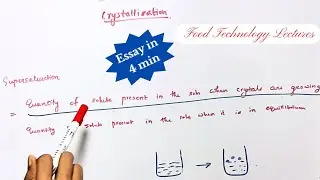 Crystallization
Food Technology Lectures
Essay in
4 min
Supersaturation
= Quantity of solute present in the soln when crystals are growing
Quantity solute present in the soln when it is in equilibrium